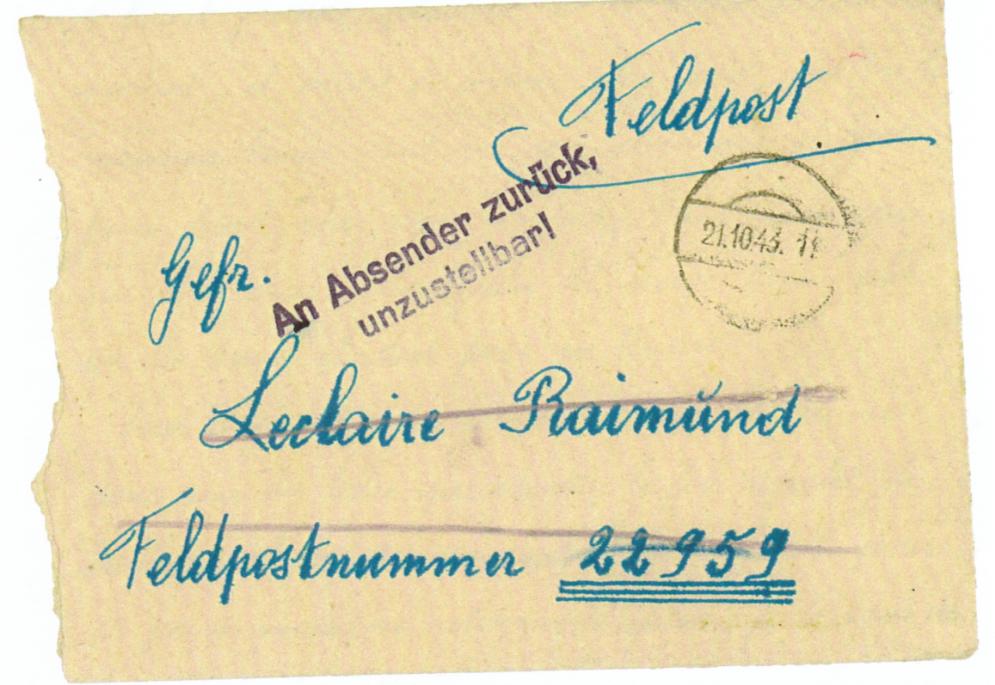 Feldpost
An Absender zurück,
unzustellbar!
21.10.43.
Gefr.
Leclaire Raimund
Feldpostnummer 22959